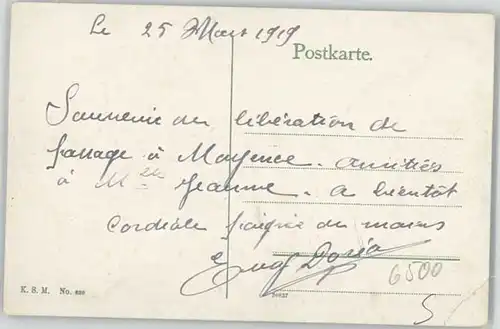 Le 25 Mars 1919
Postkarte.
Souvenir du libération de
passage à Mayence. amitiés
à Mlle Jeanne. a bientôt
Cordiale poignée de mains
Eug Doria
6500
K. S. M. No.
5